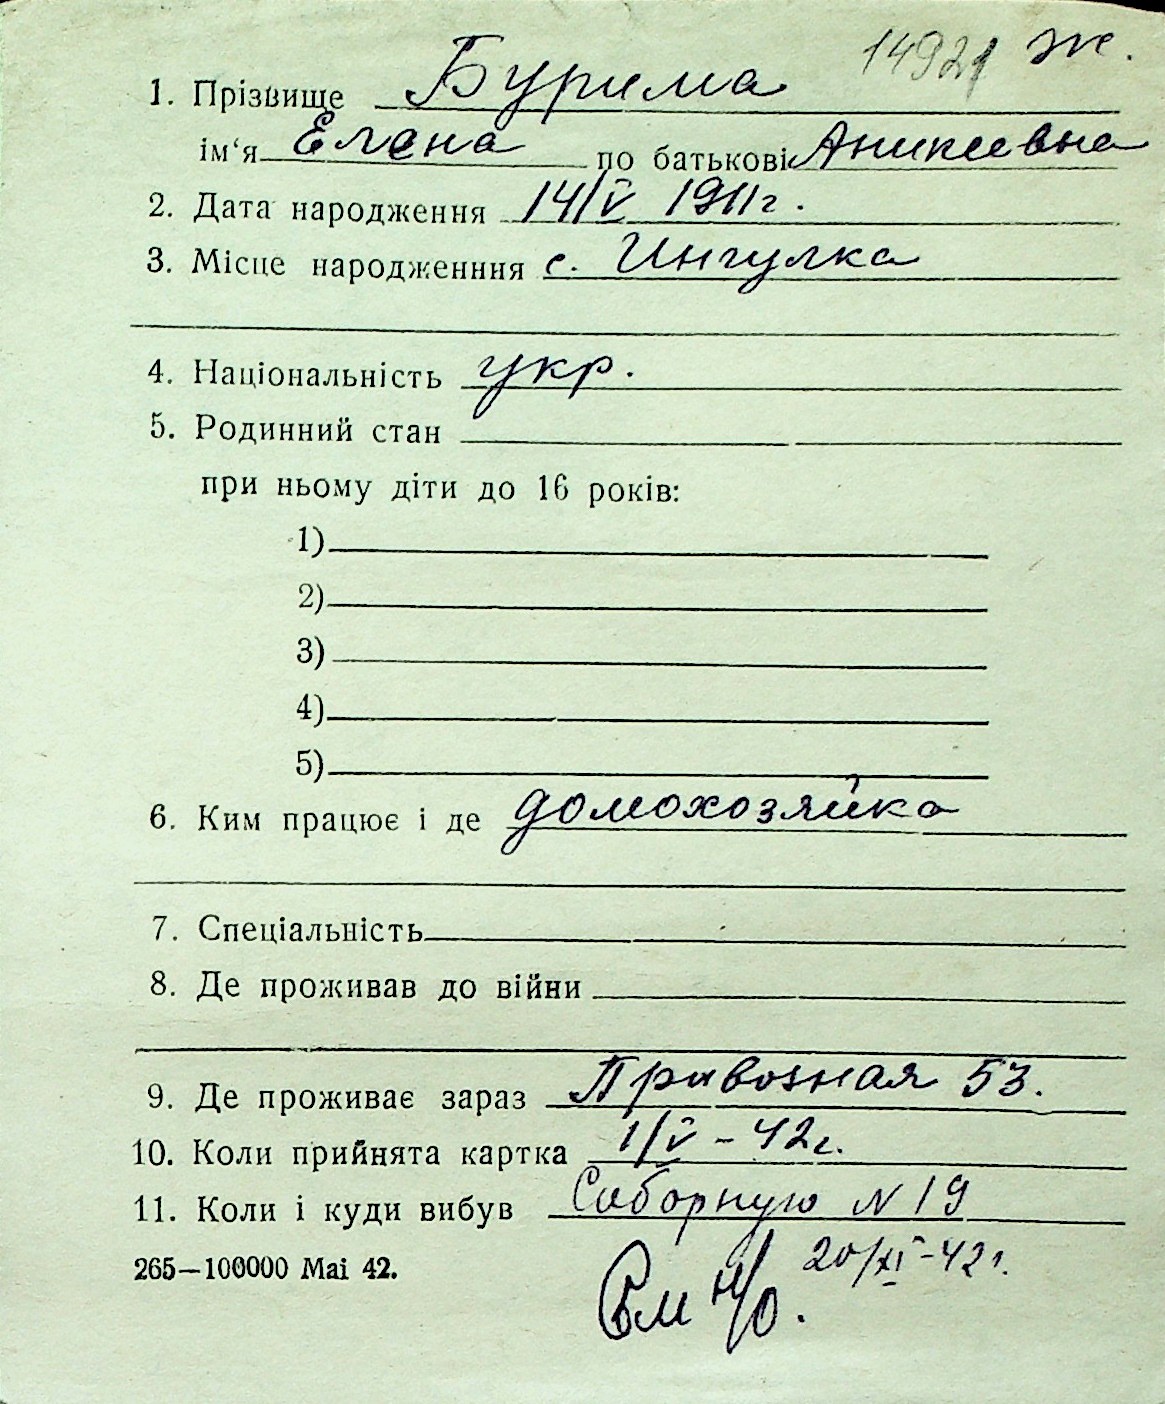 14921 ж.
1. Прізвище Бурима
ім‘я Елена по батькові Аникеевна
2. Дата народження 14/V 1911г.
3. Місце народженння с. Ингулка
4. Національність укр.
5. Родинний стан
при ньому діти до 16 років:
1)
2)
3)
4)
5)
6. Ким працює і де домохозяйка
7. Спеціальність
8. Де проживав до війни
9. Де проживає зараз Привозная 53.
10. Коли прийнята картка 1/V – 42г.
11. Коли і куди вибув Соборную N 19
265—100000 Mai 42.
20/XI – 42г.
См н/о.